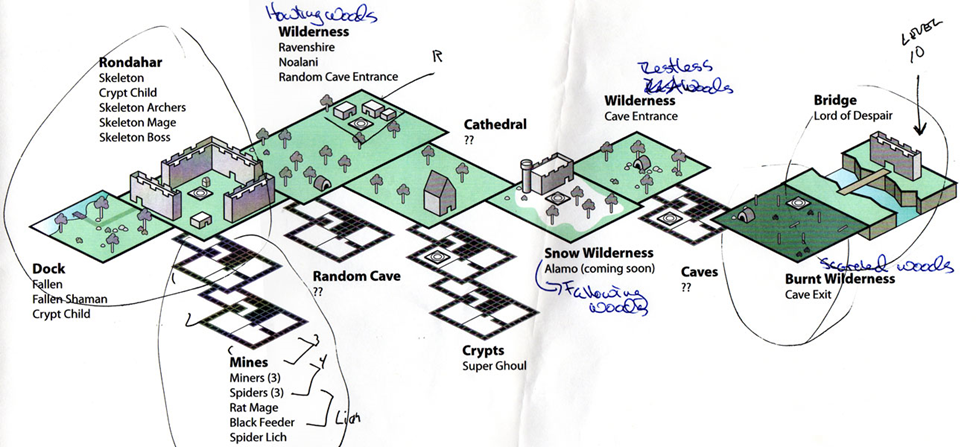 Howling woods
Wilderness
Ravenshire
Noalani
Random Cave Entrance
R
Rondahar
Skeleton
Crypt Child
Skeleton Archers
Skeleton Mage
Skeleton Boss
Cathedral
??
Restless
woods
Wilderness
Cave Entrance
LEVEL
10
Bridge
Lord of Despair
Dock
Fallen
Fallen Shaman
Crypt Child
1
2
Random Cave
??
Snow Wilderness
Alamo (coming soon)
woods
Caves
??
woods
Burnt Wilderness
Cave Exit
Crypts
Super Ghoul
Mines
Miners (3)
Spiders (3)
Rat Mage
Black Feeder
Spider Lich
3
4
Lich